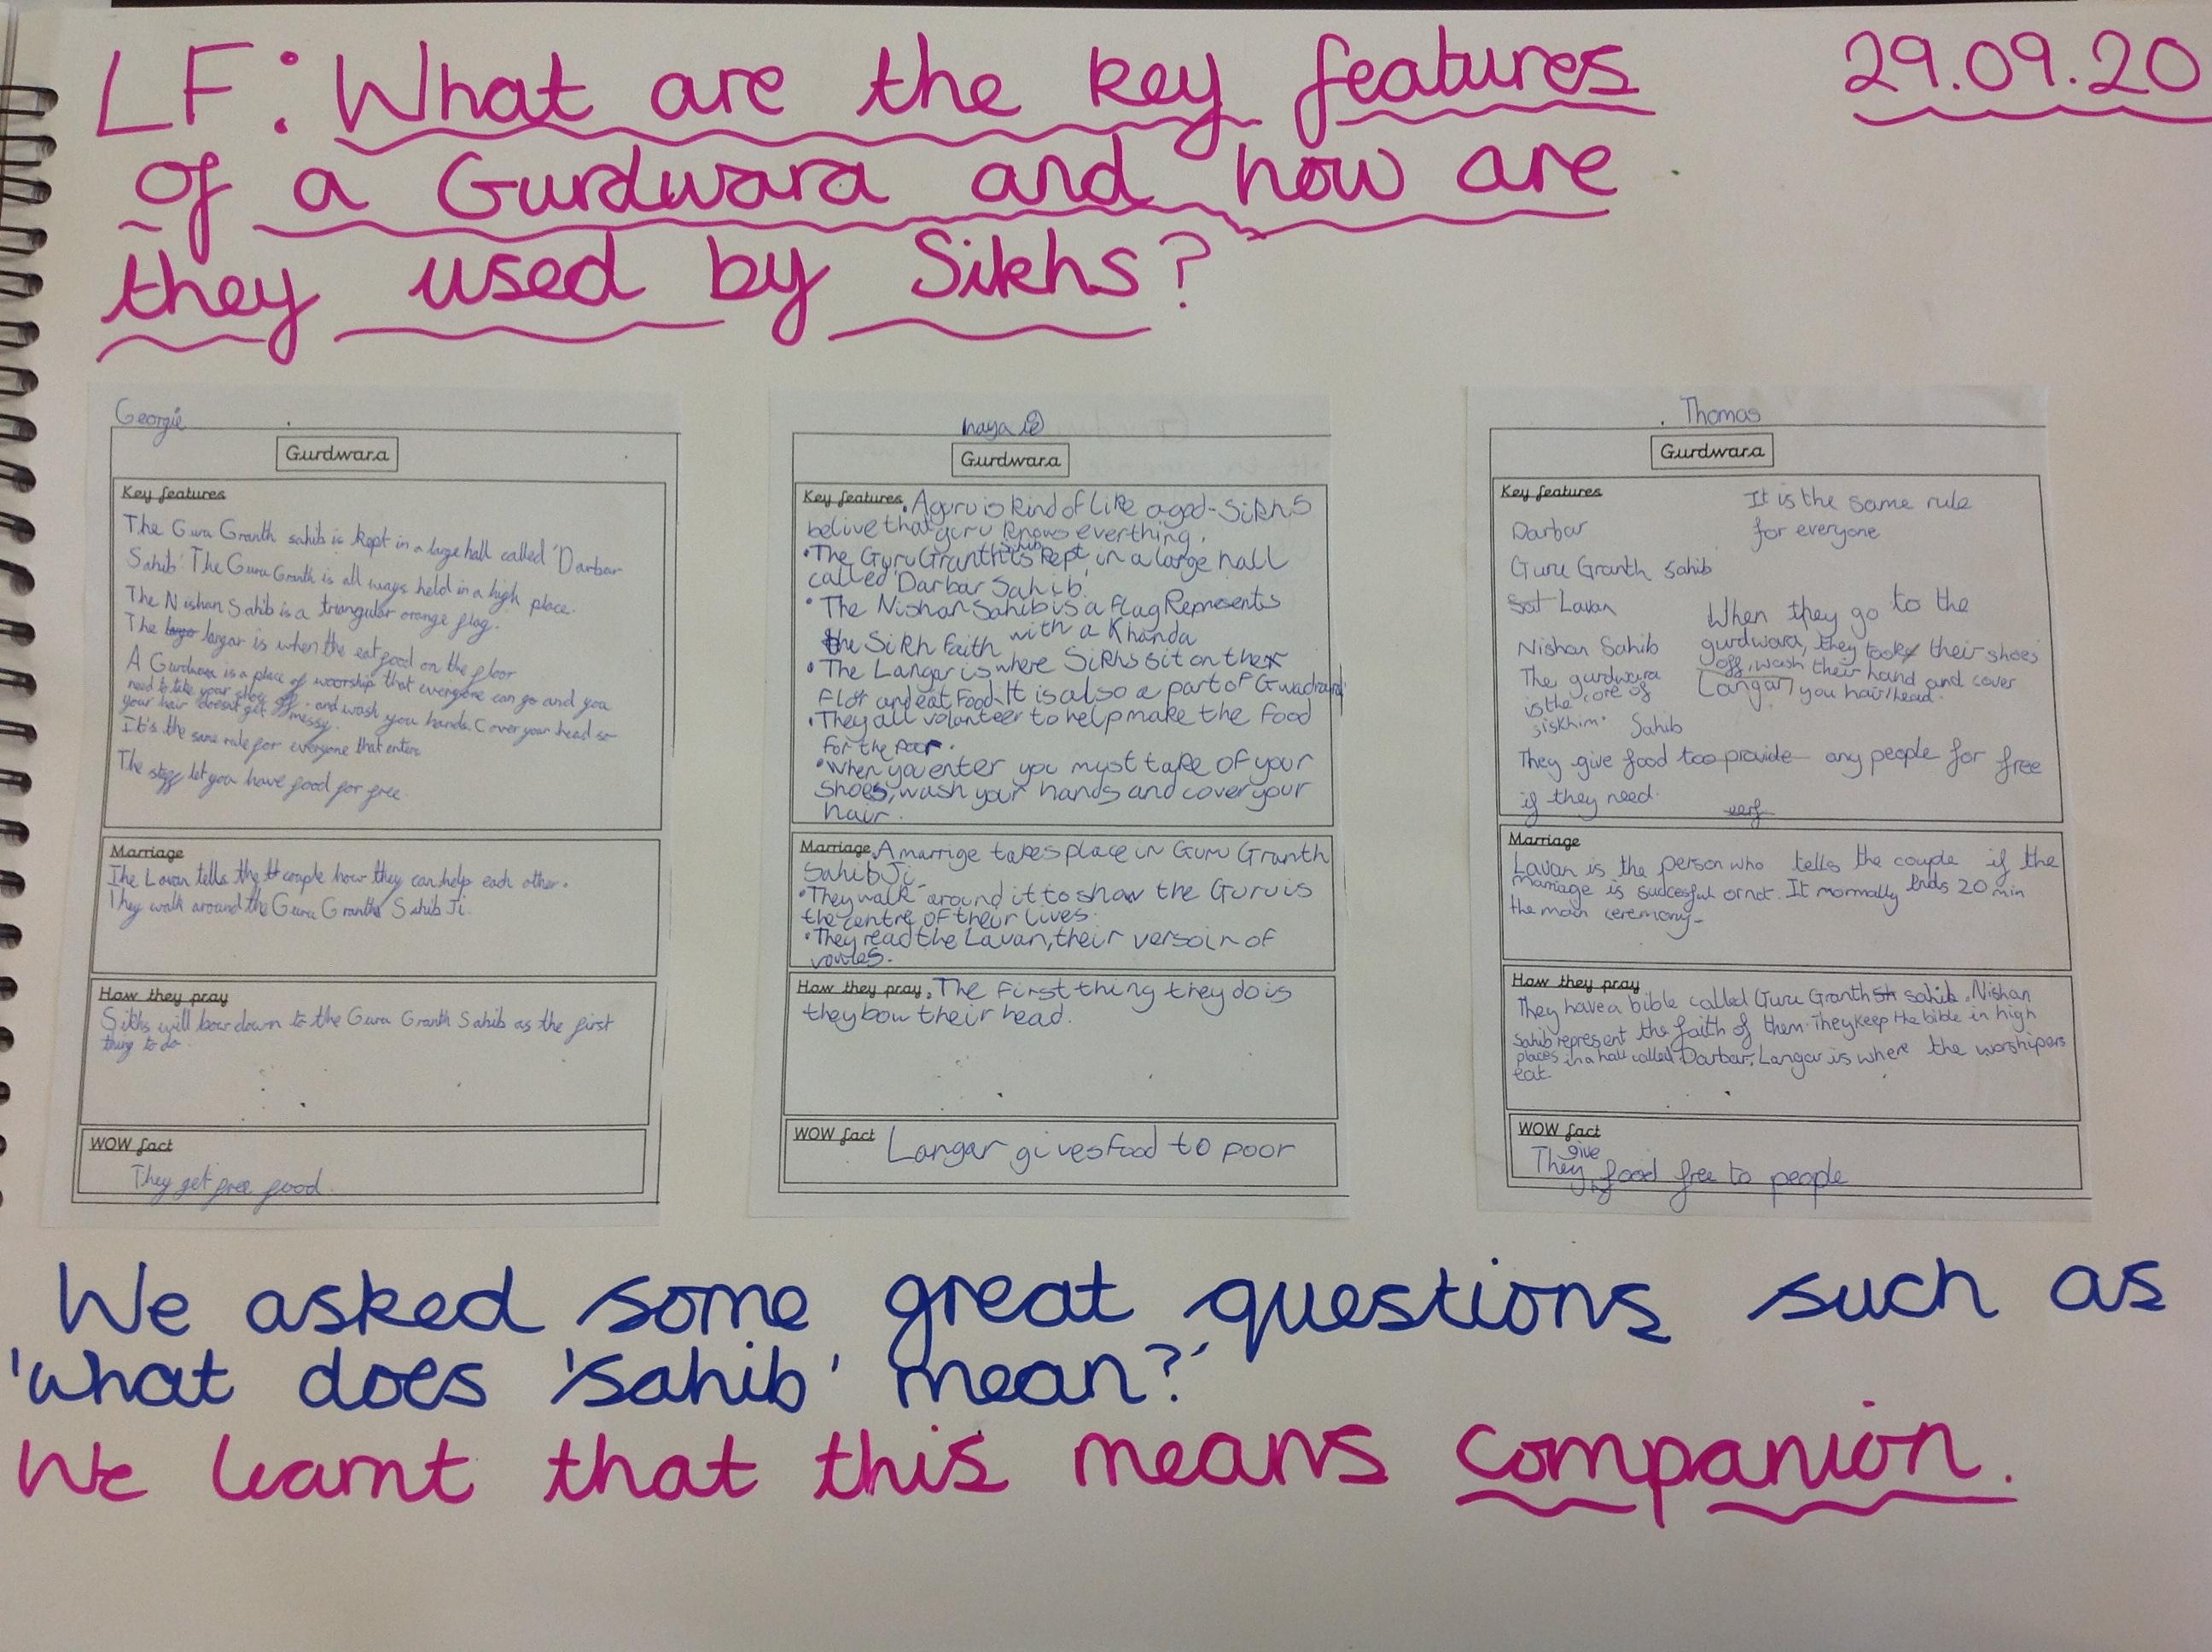 LF: What are the key features
29.09.20
of a Gurdwara and how are
they used by Sikhs?
Georgie
Gurdwara
Key features
The Guru Granth sahib is kept in a large hall called 'Darbar
Sahib'. The Guru Granth is all ways held in a high place.
The Nishan Sahib is a triangular orange flag.
The langar is when the eat food on the floor
A Gurdwara is a place of woorship that everyone can go and you
need to take your shoes off. and wash you hands. Cover your head so
your hair doesnt get messy.
It's the same rule for everyone that enters
The staff let you have food for free.
Marriage
The Lavan tells the couple how they can help each other.
They walk around the Guru Granth Sahib Ji.
How they pray
Sikhs will bow down to the Guru Granth Sahib as the first
thing to do
WOW fact
They get free food.
naya
Gurdwara
Key features. A guru is kind of like a god - Sikhs
belive that guru knows everthing.
• The Guru Granth sahib is kept in a large hall
called 'Darbar Sahib'.
• The Nishan Sahib is a flag Represents
the Sikh faith with a Khanda
• The Langar is where Sikhs sit on the
flor and eat food. It is also a part of Gwadrara
• They all volunteer to help make the food
for the poor.
• When you enter you must take of your
shoes, wash your hands and cover your
hair.
Marriage. A marrige takes place in Guru Granth
Sahib Ji.
• They walk around it to show the Guru is
the centre of their lives.
• They read the Lavan, their versoin of
How they pray. The first thing they do is
they bow their head.
WOW fact Langar gives food to poor
Thomas
Gurdwara
Key features
Darbar
Guru Granth Sahib
Sat Lavan
Nishan Sahib
The gurdwara
is the core of
siskhim.
Sahib
It is the same rule
for everyone
When they go to the
gurdwara, they took their shoes
off, wash their hand and cover
you hair/head.
Langar
They give food too provide any people for free
if they need.
Marriage
Lavan is the person who tells the couple if the
marriage is succesful or not. It normally ends 20 min
the main ceremony.
How they pray
They have a bible called Guru Granth sahib. Nishan
Sahib represent the faith of them. They keep the bible in high
places in a hall called Darbar. Langar is where the worshipers
eat.
WOW fact
They give food free to people
We asked some great questions such as
'what does 'sahib' mean?'
We learnt that this means companion.